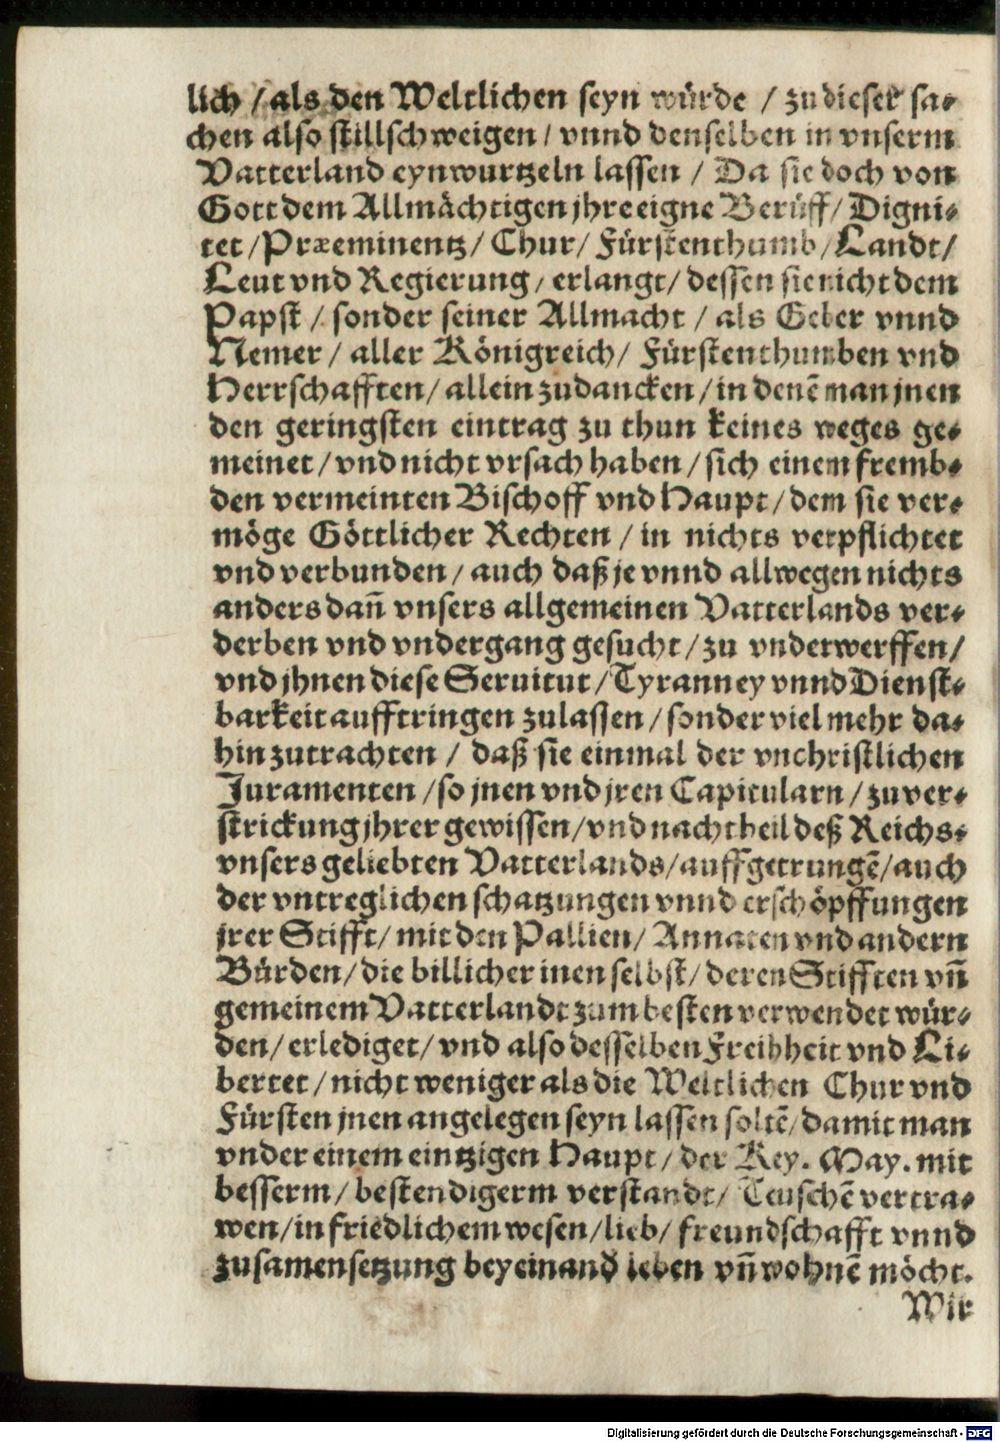 lich / als den Weltlichen seyn würde / zu dieser sa⸗
chen also stillschweigen / vnnd denselben in vnserm
Vatterland eynwurtzeln lassen / Da sie doch von
Gott dem Allmächtigen jhre eigne Berüff / Digni⸗
tet / Præeminentz / Chur / Fürstenthumb / Landt /
Leut vnd Regierung / erlangt / dessen sie nicht dem
Papst / sonder seiner Allmacht / als Geber vnnd
Nemer / aller Königreich / Fürstenthumben vnd
Herrschafften / allein zudancken / in denē man jnen
den geringsten eintrag zu thun keines weges ge⸗
meinet / vnd nicht vrsach haben / sich einem fremb⸗
den vermeinten Bischoff vnd Haupt / dem sie ver⸗
möge Göttlicher Rechten / in nichts verpflichtet
vnd verbunden / auch daß je vnnd allwegen nichts
anders dañ vnsers allgemeinen Vatterlands ver⸗
derben vnd vndergang gesucht / zu vnderwerffen /
vnd jhnen diese Seruitut / Tyranney vnnd Dienst⸗
barkeit aufftringen zulassen / sonder viel mehr da⸗
hin zutrachten / daß sie einmal der vnchristlichen
Juramenten / so jnen vnd jren Capitularn / zu ver⸗
strickung jhrer gewissen / vnd nachtheil deß Reichs⸗
vnsers geliebten Vatterlands / auffgetrungē / auch
der vntreglichen schatzungen vnnd erschöpffungen
jrer Stifft / mit den Pallien / Annaten vnd andern
Bürden / die billicher inen selbst / deren Stifften vñ
gemeinem Vatterlandt zum besten verwendet wür⸗
den / erlediget / vnd also desselben Freihheit vnd Li⸗
bertet / nicht weniger als die Weltlichen Chur vnd
Fürsten jnen angelegen seyn lassen soltē / damit man
vnder einem eintzigen Haupt / der Key. May. mit
besserm / bestendigerm verstandt / Teuschē vertra⸗
wen / in friedlichem wesen / lieb / freundschafft vnnd
zusamensetzung bey einand leben vñ wohnē möcht.
Wir
Digitalisierung gefördert durch die Deutsche Forschungsgemeinschaft - DFG